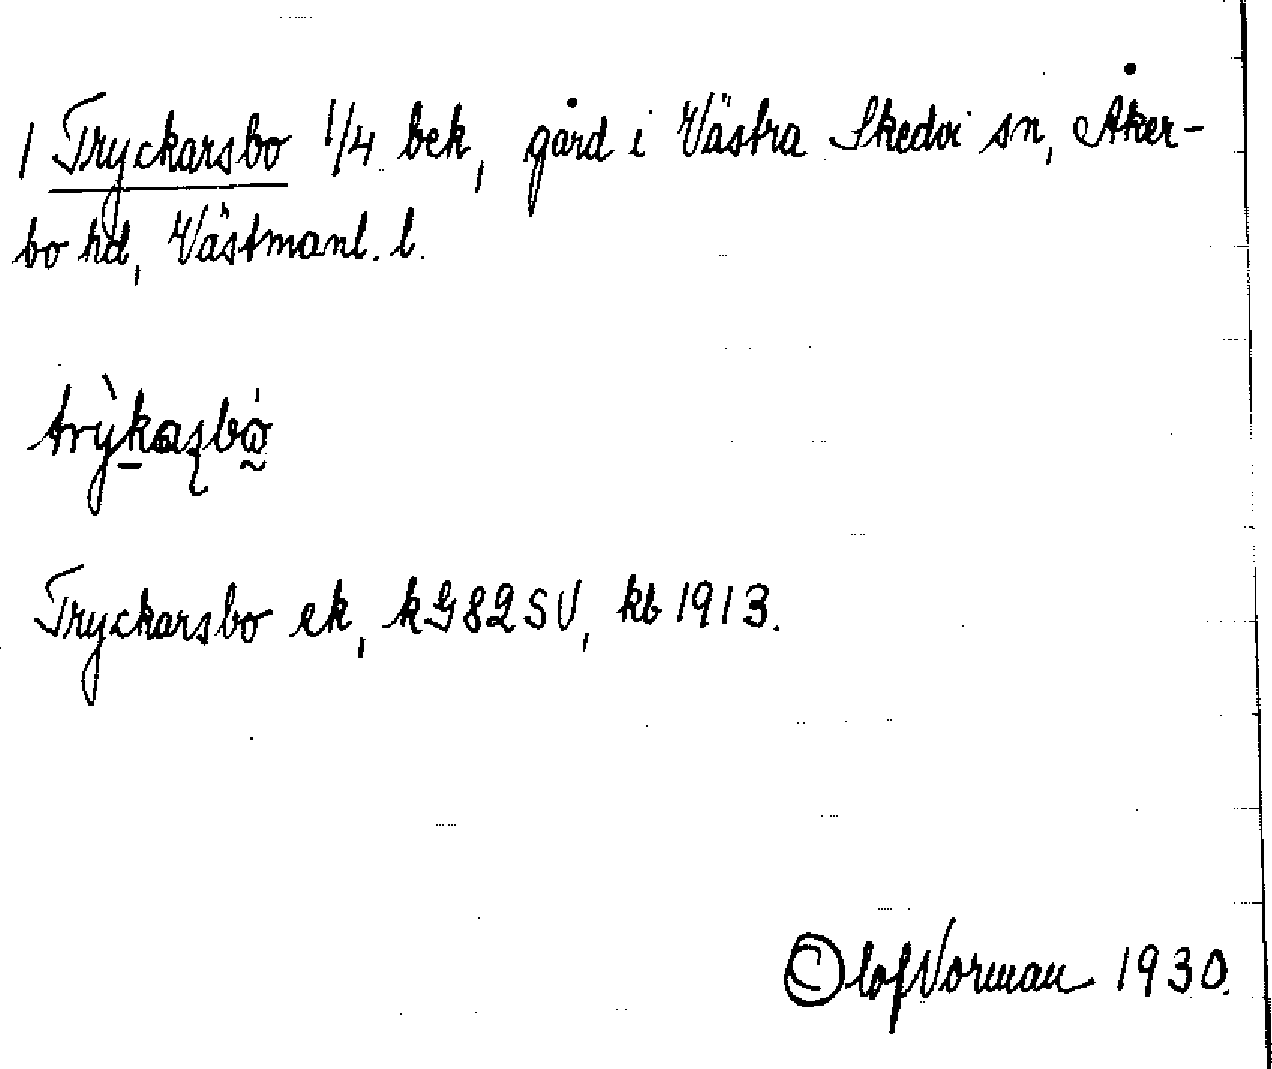 1 Tryckarsbo 1/4 bek, gård i Västra Skedvi sn, Åker-
bo hd, Västmanl. l.
Tryckarsbo ek, kG82SV, kb 1913.
Olof Vorman 1930.